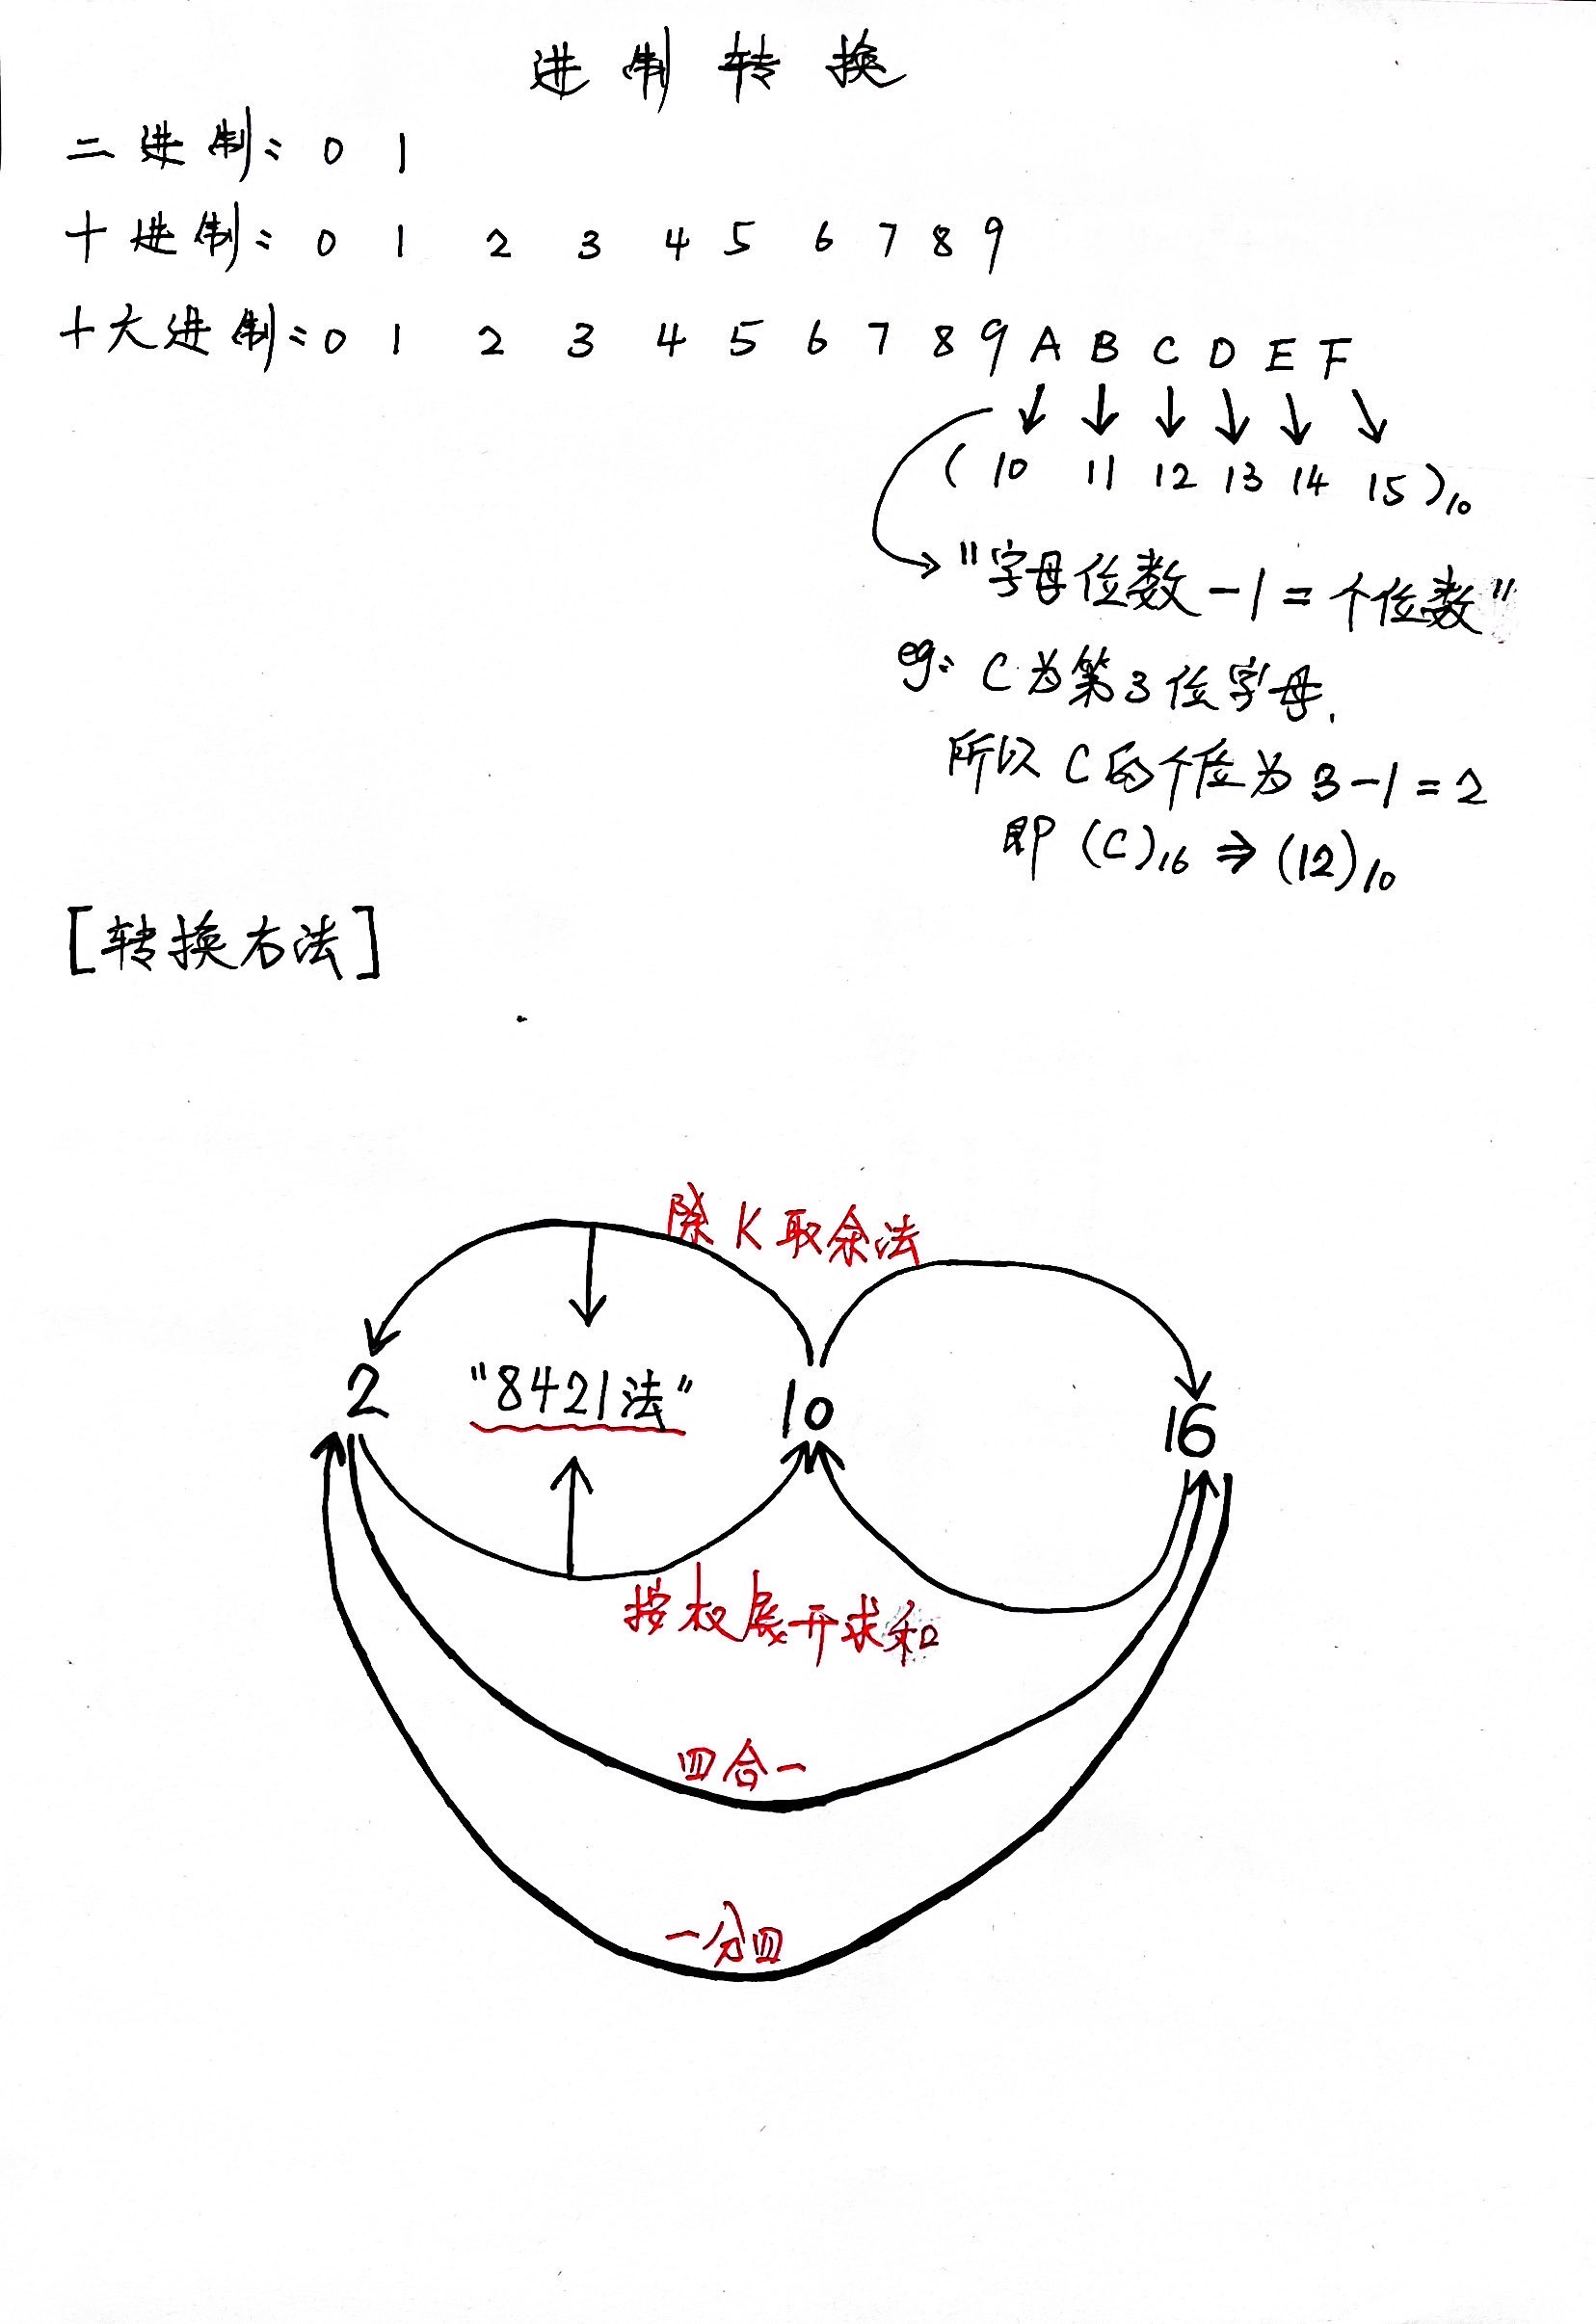 进制转换
二进制: 0 1
十进制: 0 1 2 3 4 5 6 7 8 9
十六进制: 0 1 2 3 4 5 6 7 8 9 A B C D E F
( 10 11 12 13 14 15 )₁₀
"字母位数-1=个位数"
eg: C为第3位字母.
所以C的个位为3-1=2
即 (C)₁₆ ⇒ (12)₁₀
[转换方法]
除K取余法
2 "8421法" 10 16
按权展开求和
四合一
一分四